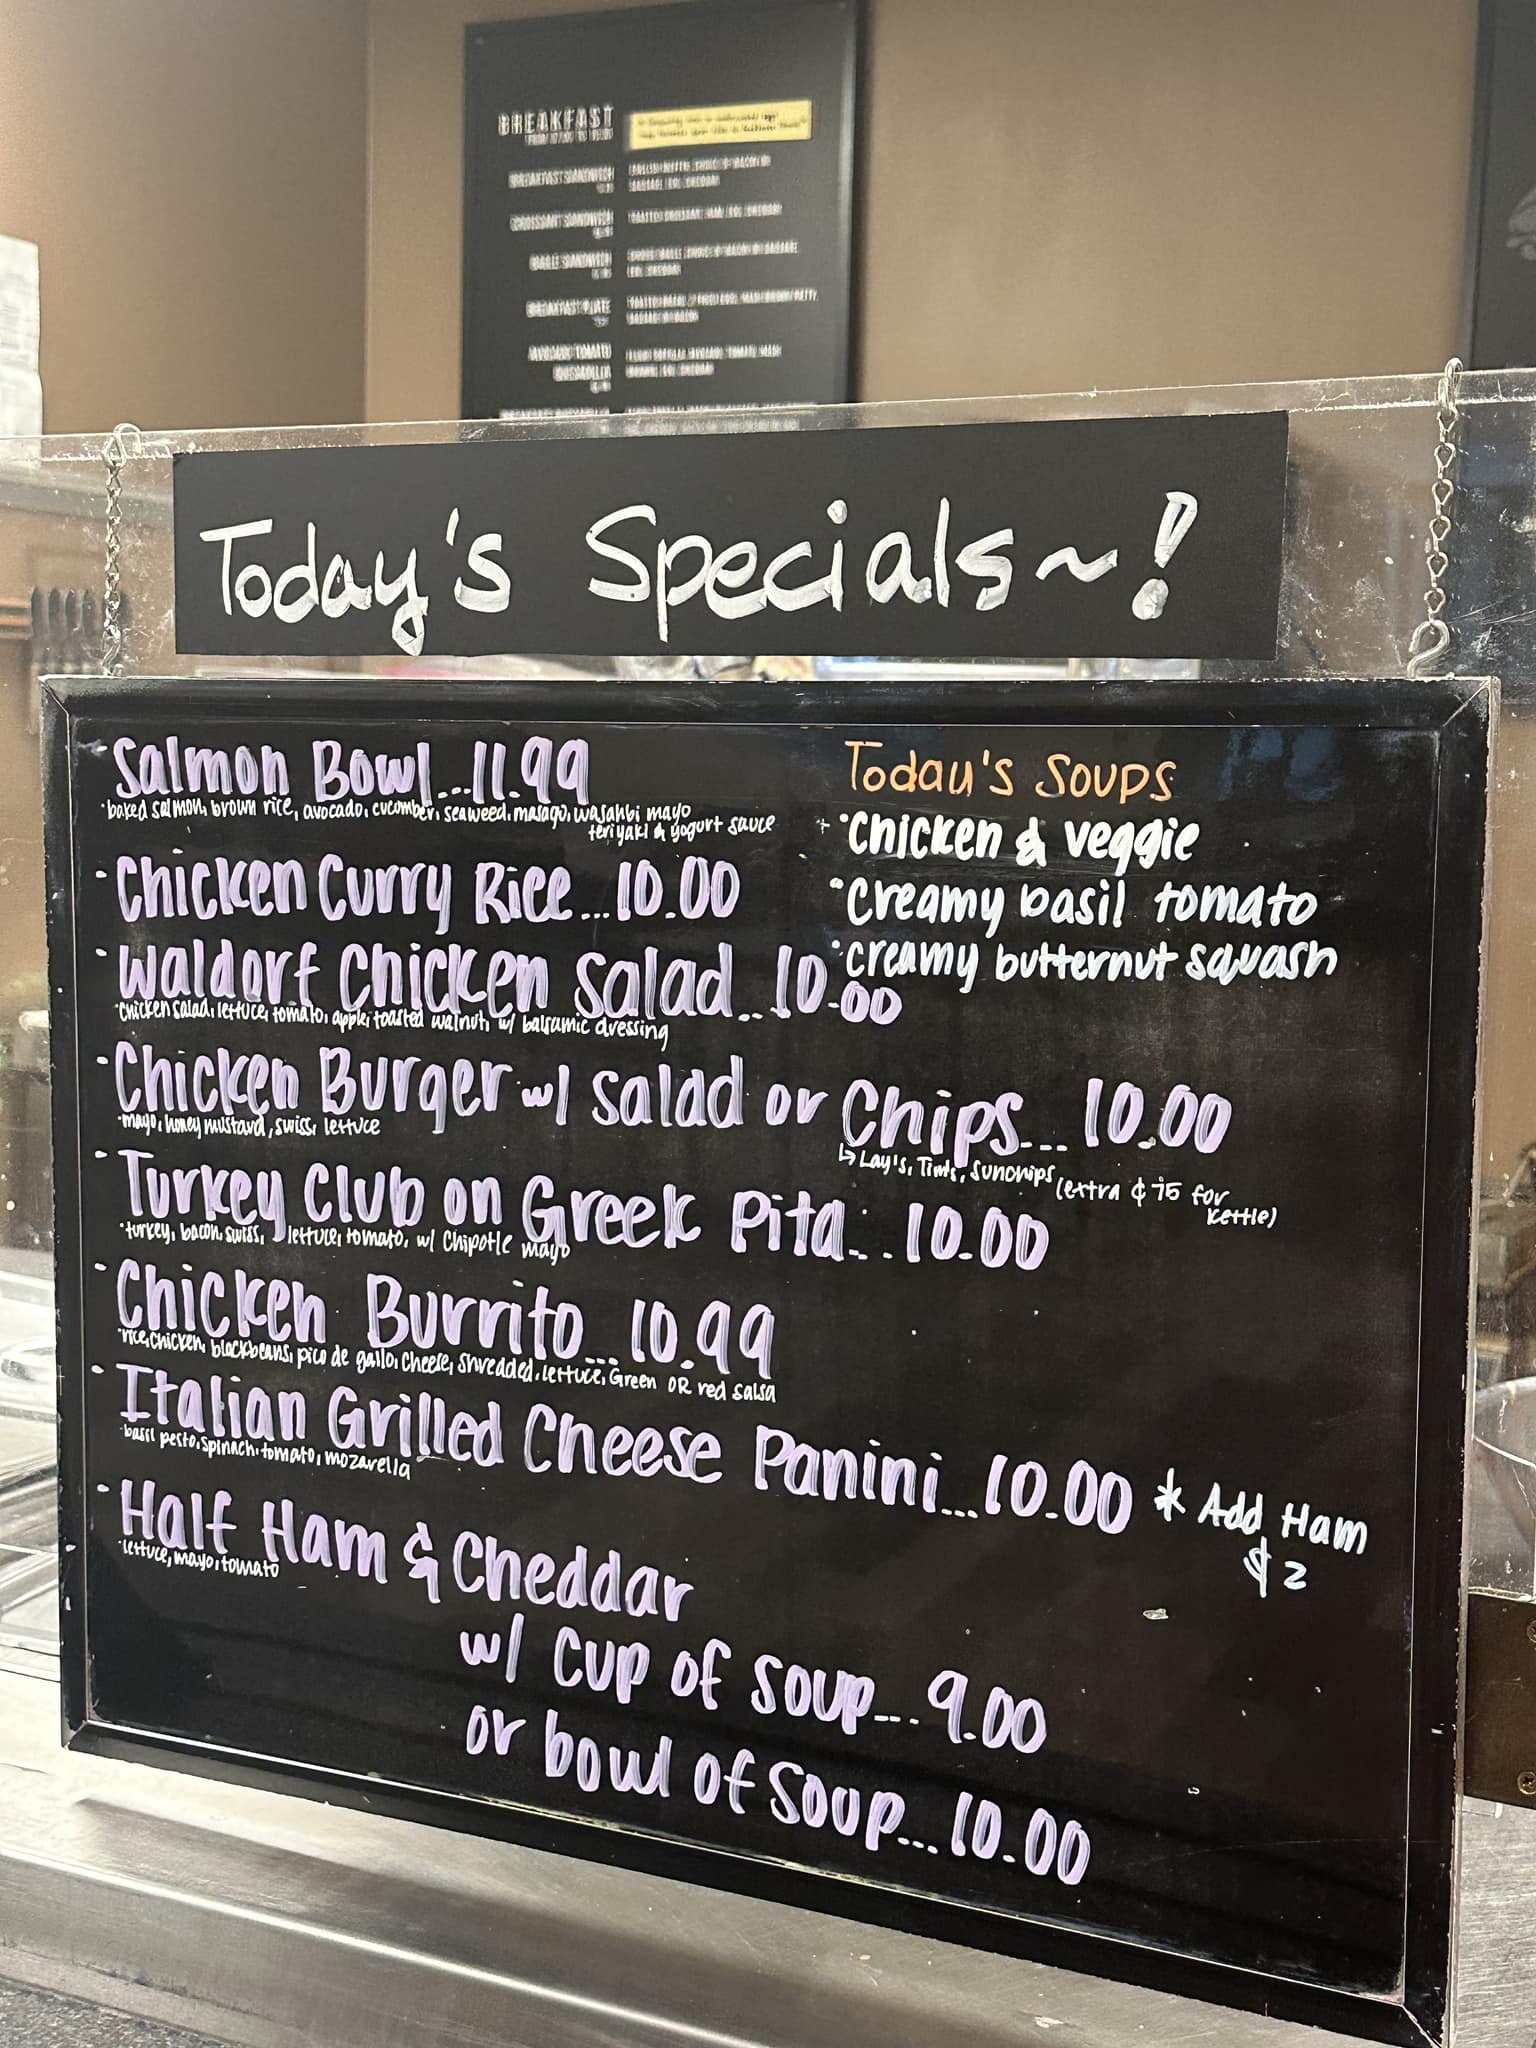 BREAKFAST
BREAKFAST SANDWICH
CROISSANT SANDWICH
BREAKFAST PLATE
AVOCADO TOMATO
Today's Specials~!
·Salmon Bowl...11.99
·baked salmon, brown rice, avocado, cucumber, seaweed, masago, wasahbi mayo
teriyaki & yogurt sauce
·Chicken Curry Rice...10.00
·Waldorf Chicken Salad...10.00
·chicken salad, lettuce, tomato, apple, toasted walnut, w/ balsamic dressing
·Chicken Burger w/ salad or Chips...10.00
·mayo, honey mustard, swiss, lettuce
↳ Lay's, Tim's, Sunchips (extra ¢75 for
kettle)
·Turkey Club on Greek Pita...10.00
·turkey, bacon, swiss, lettuce, tomato, w/ Chipotle mayo
·Chicken Burrito...10.99
·rice, chicken, blackbeans, pico de gallo, cheese, shredded, lettuce, Green OR red salsa
·Italian Grilled Cheese Panini...10.00 * Add Ham
$2
·basil pesto, spinach, tomato, mozarella
·Half Ham & Cheddar
·lettuce, mayo, tomato
w/ cup of soup...9.00
or bowl of soup...10.00
Today's Soups
·chicken & veggie
·creamy basil tomato
·creamy butternut squash